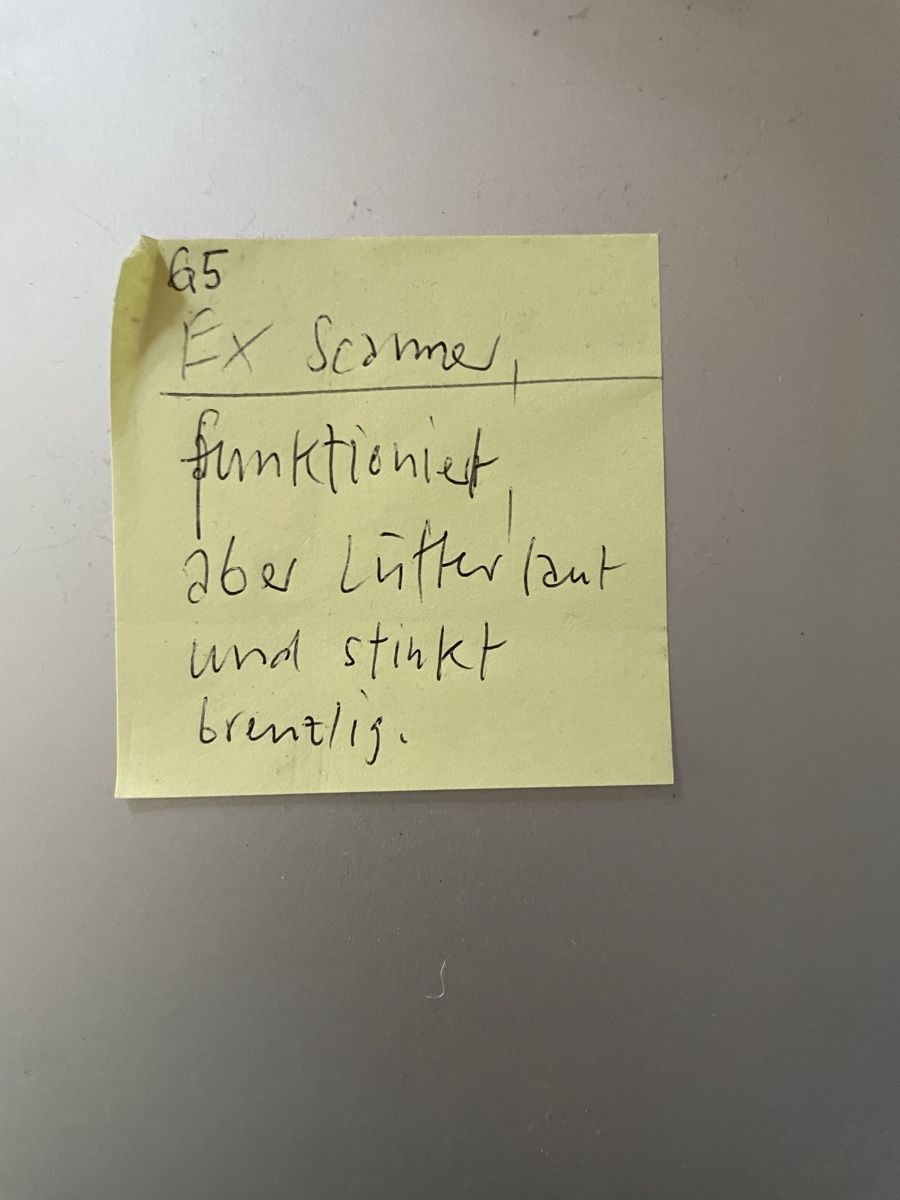 G5
Ex Scanner,
funktioniert,
aber Lüfter laut
und stinkt
brenzlig.